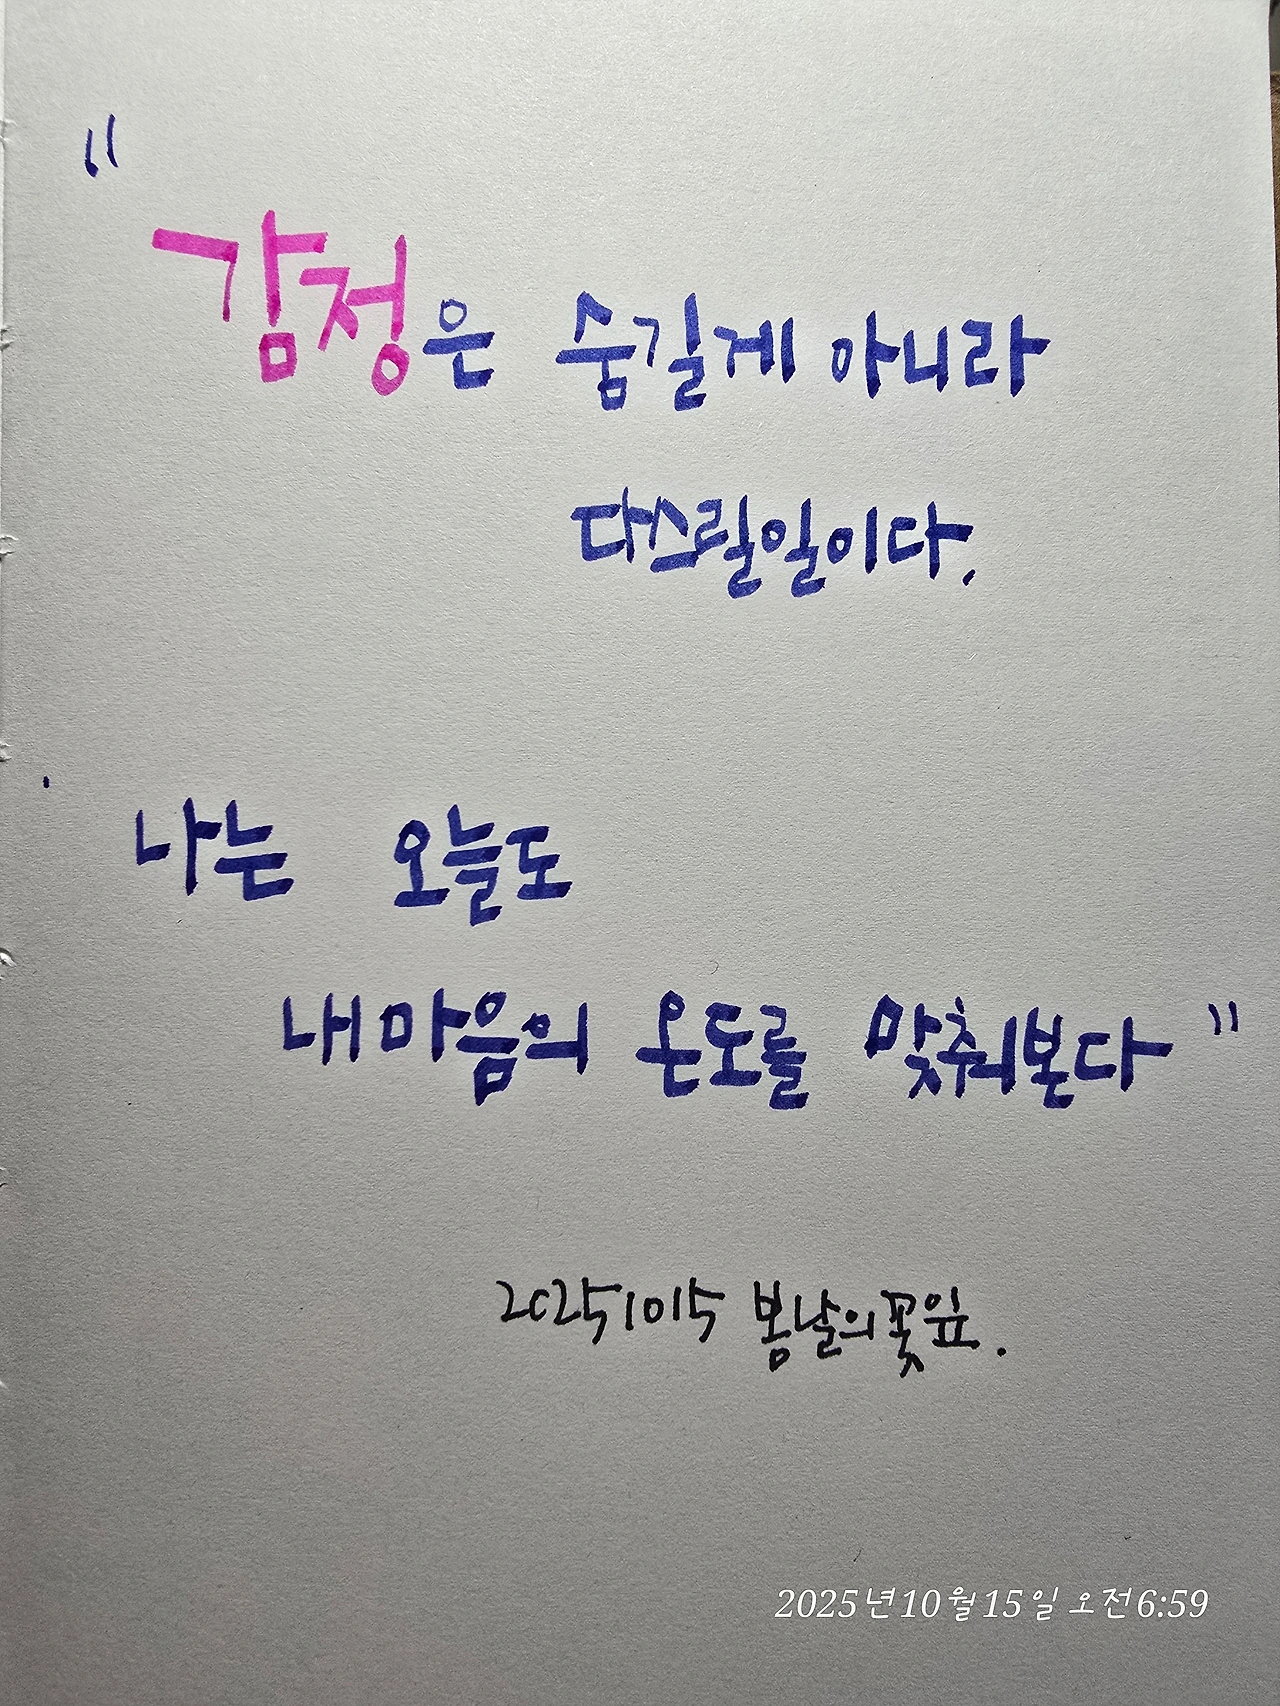 "
감정은 숨길게 아니라
다스릴일이다.
나는 오늘도
내마음의 온도를 맞춰본다"
20251015 봄날의꽃잎.
2025년10월15일 오전6:59